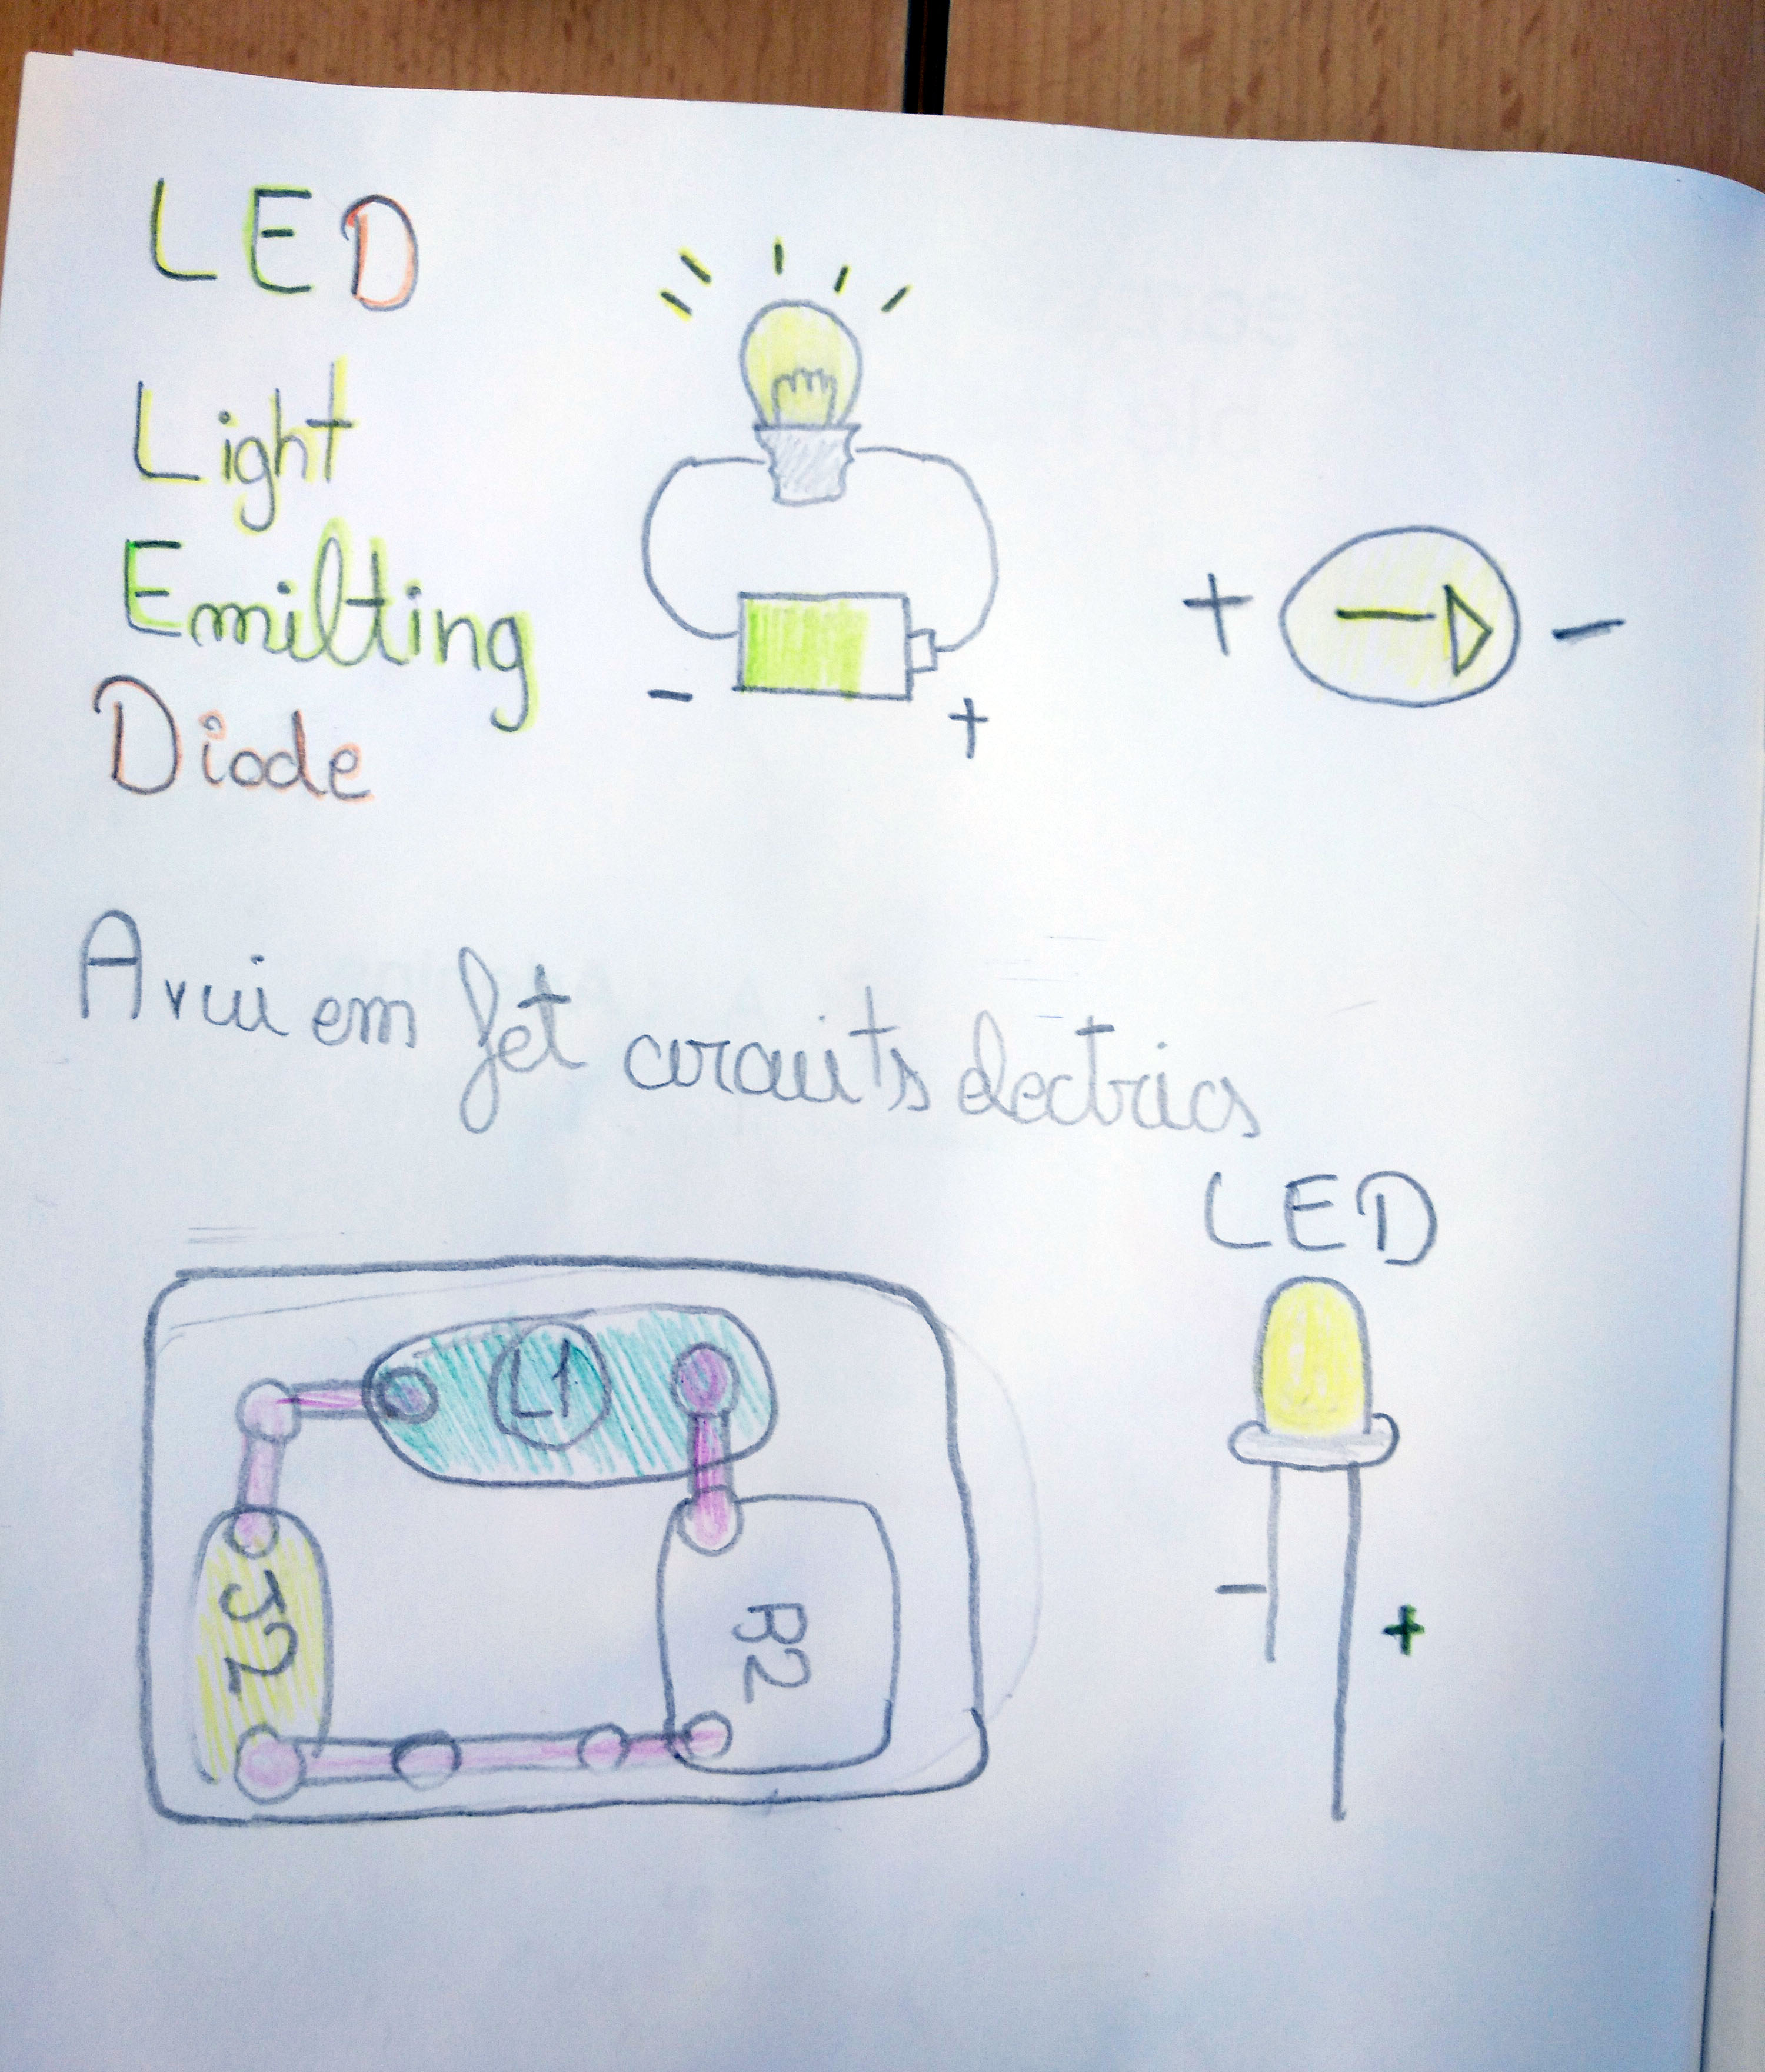 LED
Light
Emilting
Diode
- +
+ -
Avui em fet circuits electrics
LED
L1
J2
R2
- +